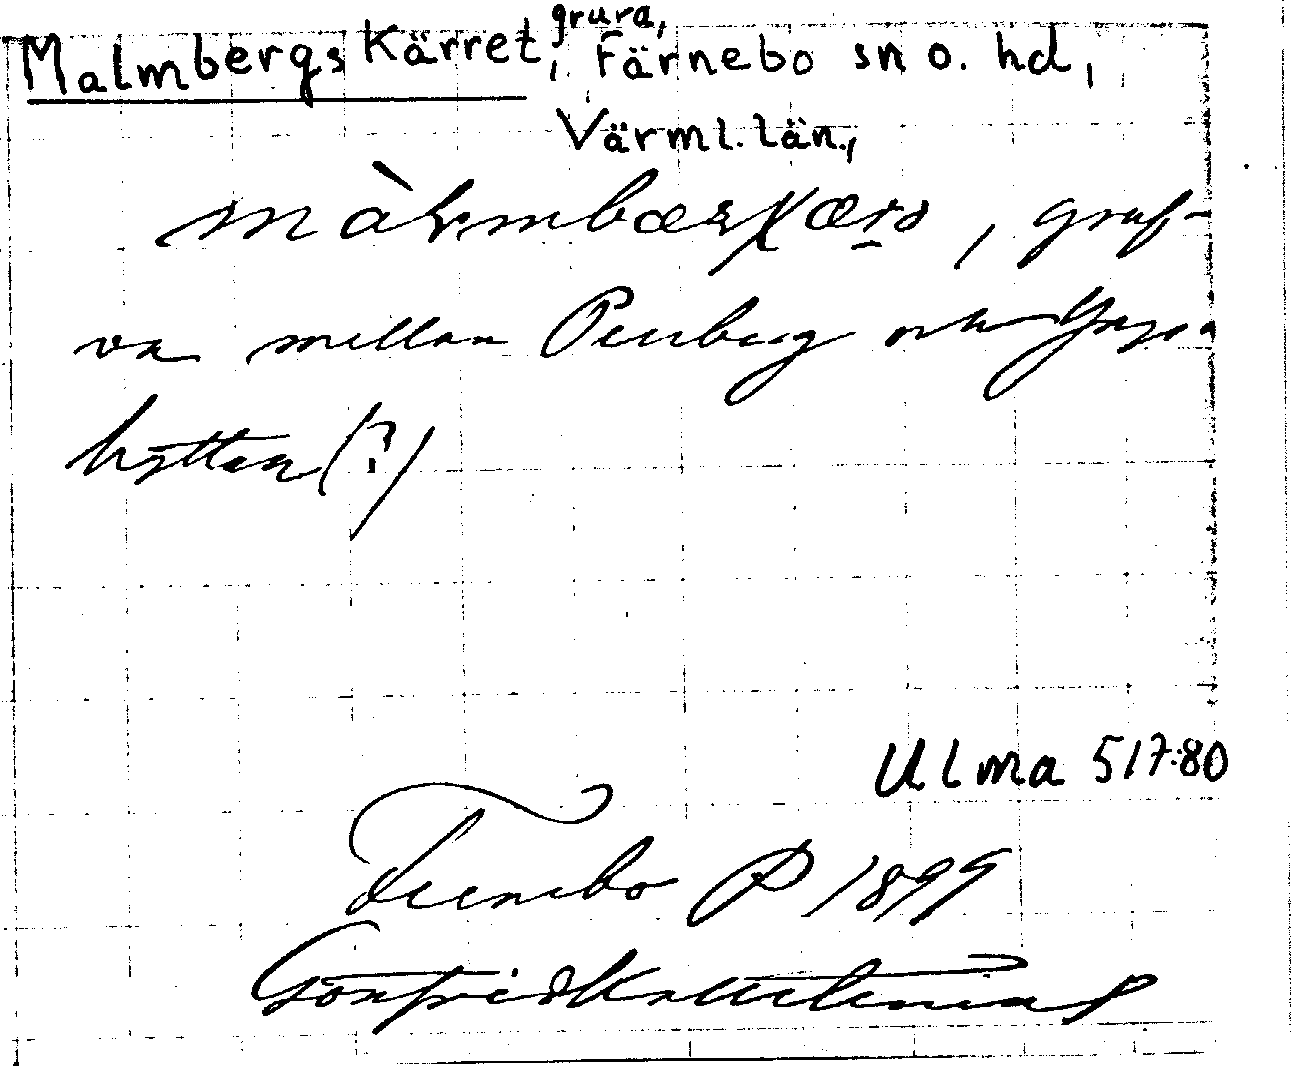 Malmbergs Kärret, gruva, Färnebo sn o. hd,
Värml. län.,
, gruf-
va mellan Persberg och
hyttan (?)
Ulma 517:80
Fernebo P 1899
Gottfrid Kallstenius